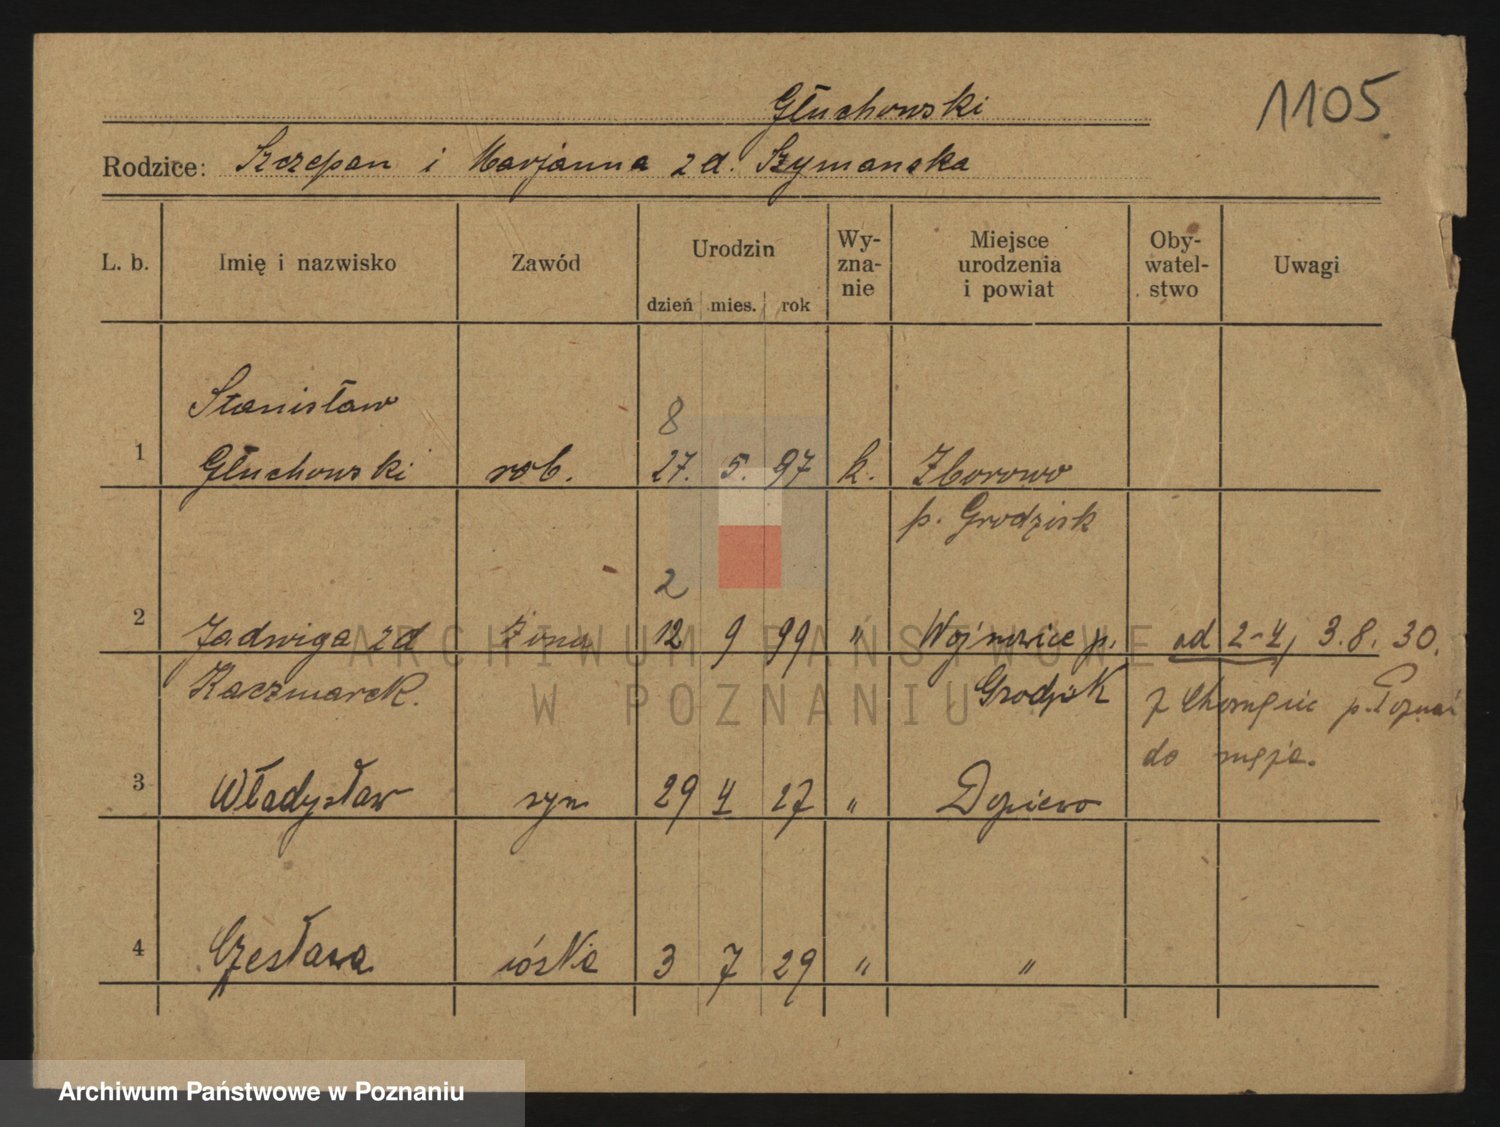 Głuchowski
1105
Rodzice: Szczepan i Marjanna zd. Szymanska
L. b. Imię i nazwisko Zawód Urodzin dzień mies. rok Wy-zna-nie Miejsce urodzenia i powiat Oby-watel-stwo Uwagi
Stanisław
8
1 Głuchowski rob. 27. 5. 97 k. Zborowo
p. Grodzisk
2
2 Jadwiga zd żona 12 9 99 " Wojnowice p. od 2-4, 3.8.30.
Kaczmarek. Grodzisk
z p. Poznań
do męża.
3 Władysław syn 29 4 27 " Dopiewo
4 Czesława córka 3 7 29 " "
ARCHIWUM PAŃSTWOWE
W POZNANIU
Archiwum Państwowe w Poznaniu